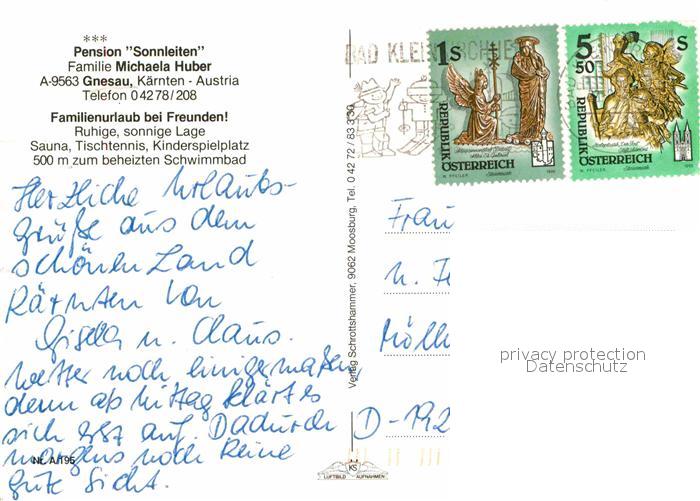 ***
Pension "Sonnleiten"
Familie Michaela Huber
A-9563 Gnesau, Kärnten - Austria
Telefon 0 42 78 / 208
Familienurlaub bei Freunden!
Ruhige, sonnige Lage
Sauna, Tischtennis, Kinderspielplatz
500 m zum beheizten Schwimmbad
Herzliche Urlaubs-
grüße aus dem
schönen Land
Kärnten von
Gisela u. Claus.
Wetter noch einigermaßen
denn ab Mittag klärt es
sich erst auf. Dadurch
morgens noch keine
gute Sicht.
Nr. A/195
Verlag Schrottshammer, 9062 Moosburg, Tel. 0 42 72 / 83 3 30
KS
LUFTBILD AUFNAHMEN
BAD KLEINKIRCHHEIM
1 S
REPUBLIK
ÖSTERREICH
W. PFEILER
5 50 S
REPUBLIK
ÖSTERREICH
W. PFEILER
Frau
u.
Mölln
D-192
privacy protection
Datenschutz